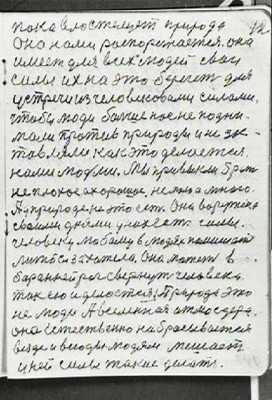 пока властвует природа
12
Она нами распоряжается. она
имеет для всех людей свои
силы их на это берет для
устреч из человиковами силами,
чтобы люди больше после подни-
мали против природы и не
ставляли как это делается
нами людми. Мы привыкли брат
не плохое а хорошое, не мало а много.
А у природе на это есть. Она
своими днями унижает силы
человеку
либо захотела. Она может в
бараней рог свернуть человека.
так ею и делается. Природа это
не люди А вселенная атмосфера.
она естественно набрасывается
везде и всюды людям мешает
у ней силы такие делать.